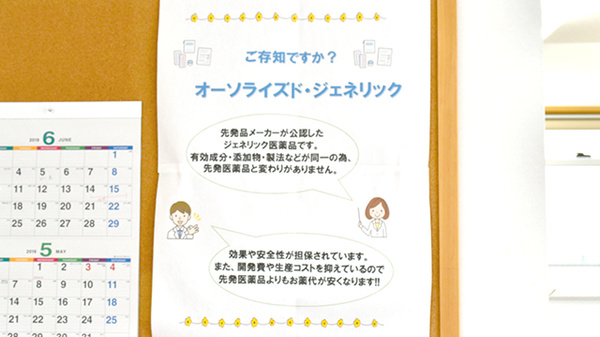 ご存知ですか？
オーソライズド・ジェネリック
先発品メーカーが公認した
ジェネリック医薬品です。
有効成分・添加物・製法などが同一の為、
先発医薬品と変わりがありません。
効果や安全性が担保されています。
また、開発費や生産コストを抑えているので
先発医薬品よりもお薬代が安くなります!!
2019 6 JUNE
1
4 5 6 7 8
11 12 13 14 15
18 19 20 21 22
25 26 27 28 29
2019 5 MAY
1 2 3 4
7 8 9 10 11
14 15 16 17 18
21 22 23 24 25